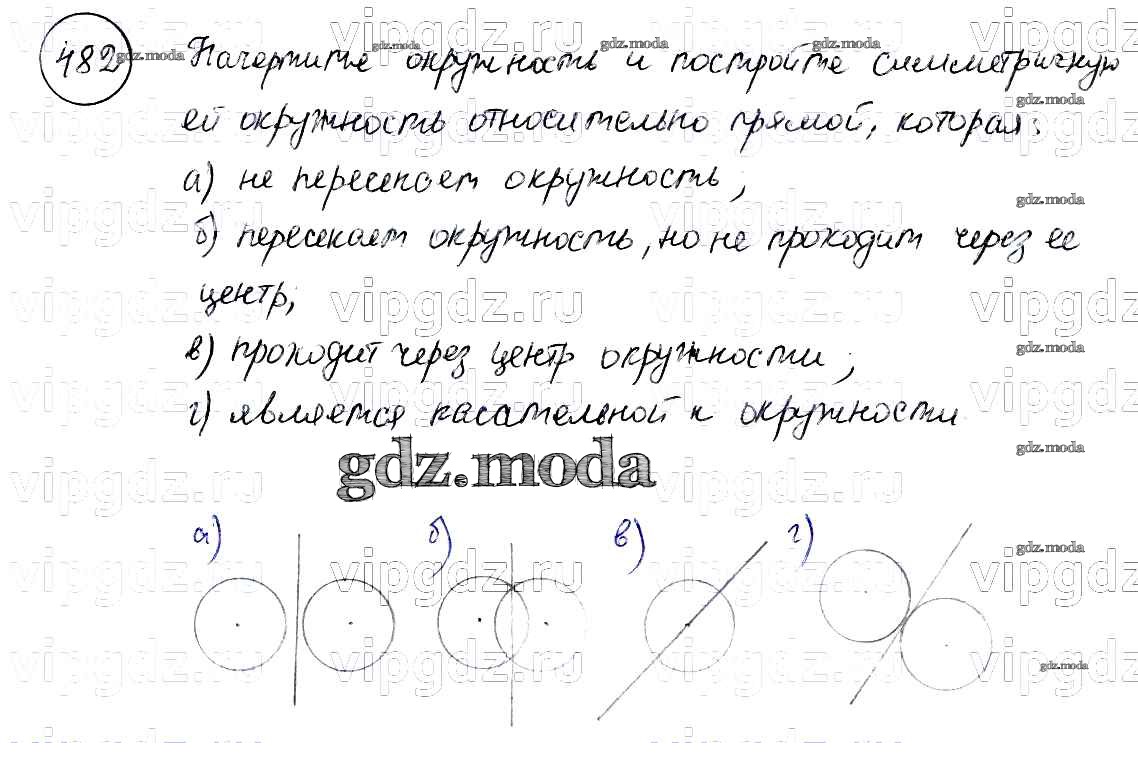 482 Начертите окружность и постройте симметричную
ей окружность относительно прямой, которая:
а) не пересекает окружность;
б) пересекает окружность, но не проходит через ее
центр;
в) проходит через центр окружности;
г) является касательной к окружности
gdz.moda
а) б) в) г)